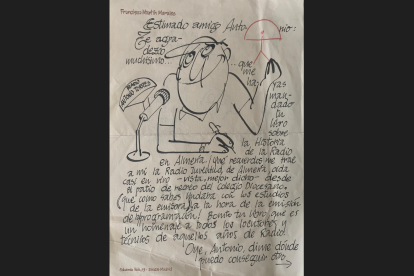 Francisco Martín Morales
Estimado amigo Anto
nio:
Te agra-
dezco
muchísimo...
...que
me
ha-
yas
man-
dado
tu
libro
sobre
la Historia
de la Radio
en Almería! ¡Qué recuerdos me trae
a mí la Radio Juventud de Almería, oída
casi en vivo -vista, mejor dicho- desde
el patio de recreo del colegio Diocesano,
que como sabes lindaba con los estudios
de la emisora, a la hora de la emisión
de programación! Bonito tu libro, que es
un homenaje a todos los locutores y
técnicos de aquellos años de Radio!
Oye, Antonio, dime dónde
puedo conseguir